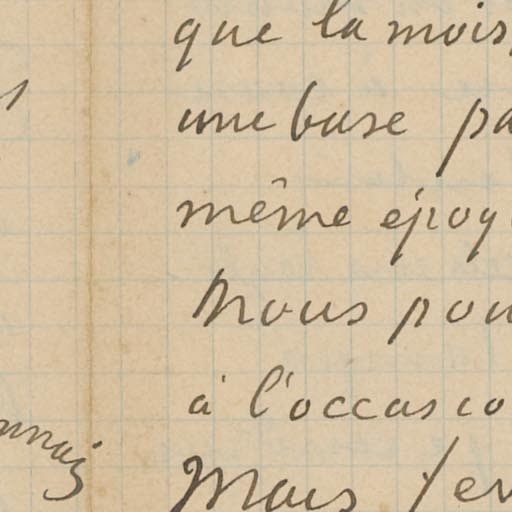 que la mois
une base pa
même époq
Nous pou
à l'occasio
Mais fer